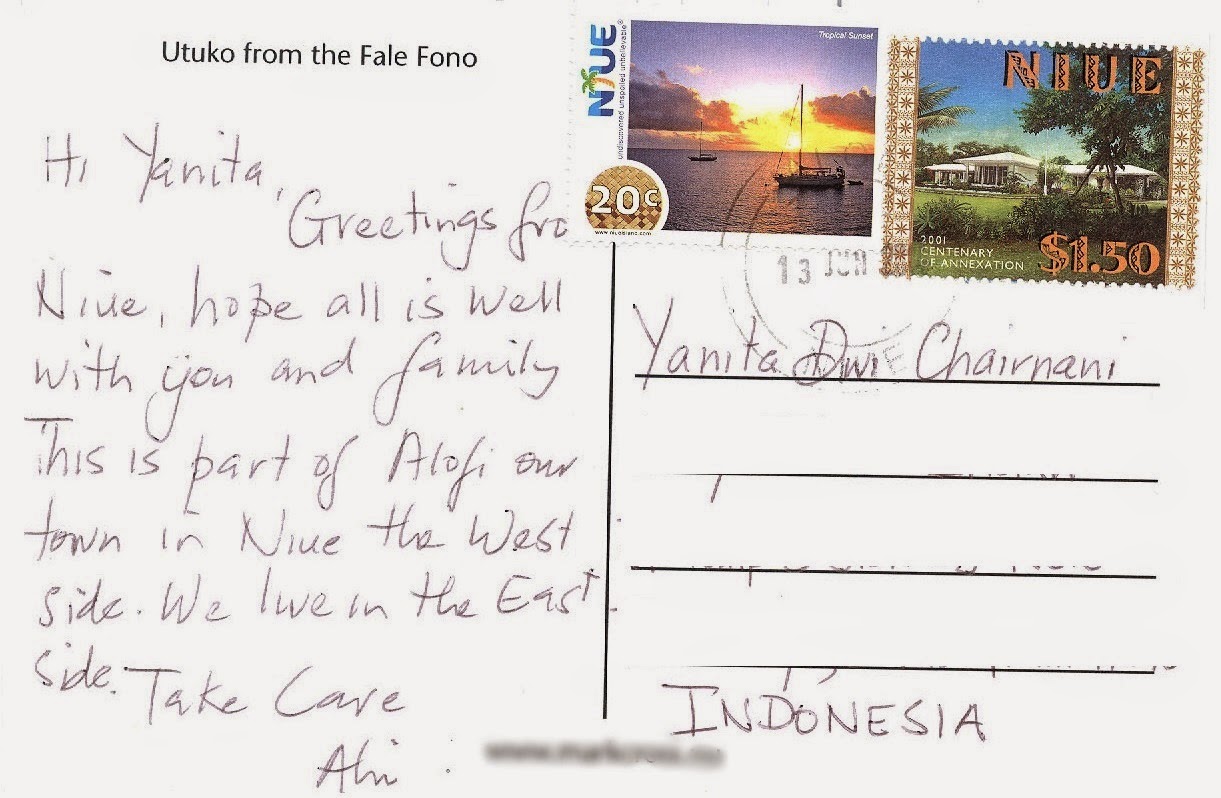 Utuko from the Fale Fono
NIUE
undiscovered unspoiled unbelievable
Tropical Sunset
20c
www.niueisland.com
NIUE
2001
CENTENARY
OF ANNEXATION
$1.50
13 JUN
Hi Yanita,
Greetings fro
Niue, hope all is well
with you and family
This is part of Alofi our
town in Niue the West
side. We live in the East
side.
Take Care
Yanita Dwi Chairnani
INDONESIA